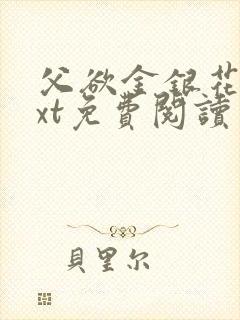 父欲金银花
xt免費閱讀
貝里尔